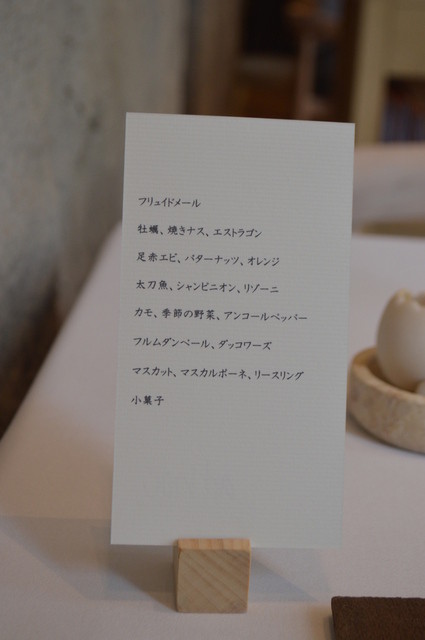 フリュイドメール
牡蠣、焼きナス、エストラゴン
足赤エビ、バターナッツ、オレンジ
太刀魚、シャンピニオン、リゾーニ
カモ、季節の野菜、アンコールペッパー
フルムダンベール、ダッコワーズ
マスカット、マスカルポーネ、リースリング
小菓子